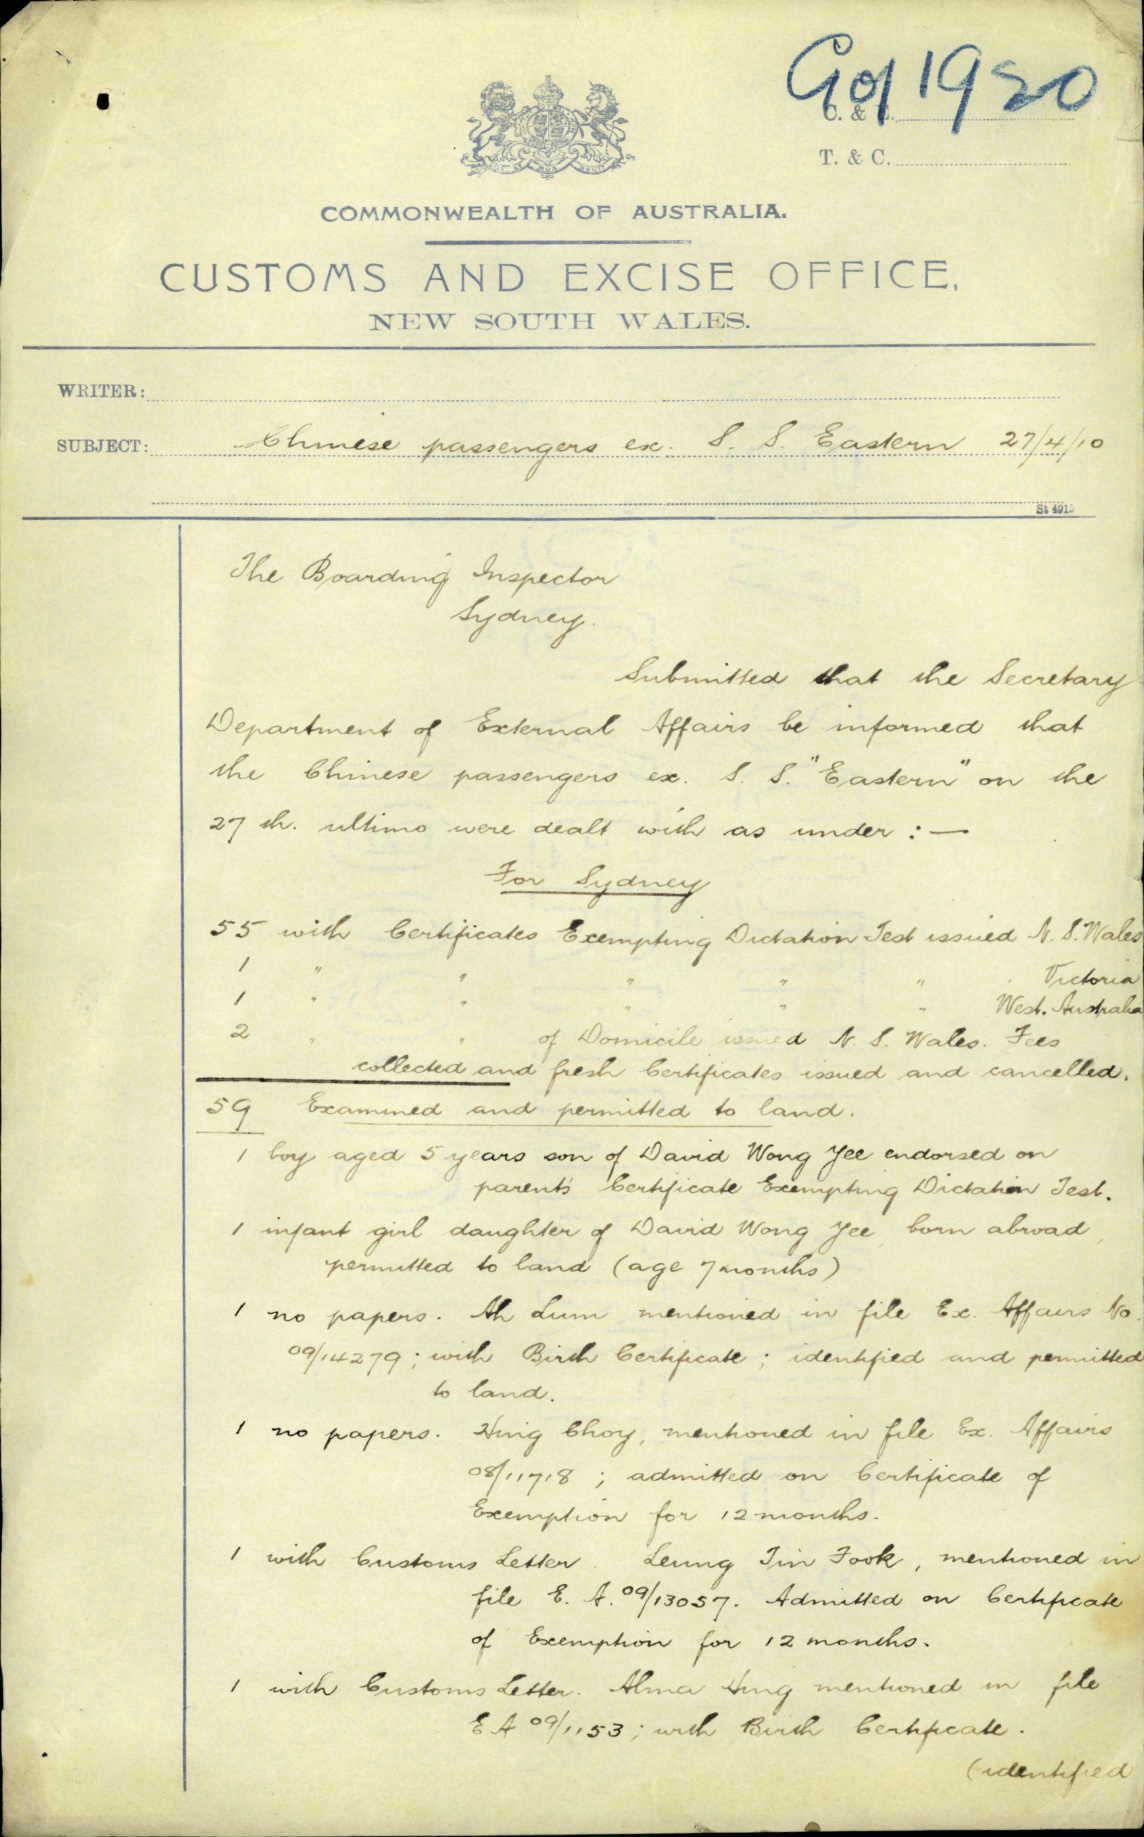 G 10/1920
C. &
T. & C.
COMMONWEALTH OF AUSTRALIA.
CUSTOMS AND EXCISE OFFICE,
NEW SOUTH WALES.
WRITER:
SUBJECT: Chinese passengers ex. S. S. Eastern 27/4/10
St 4915
The Boarding Inspector
Sydney.
Submitted that the Secretary
Department of External Affairs be informed that
the Chinese passengers ex. S. S. "Eastern" on the
27 th. ultimo were dealt with as under :—
For Sydney
55 with Certificates Exempting Dictation Test issued N. S. Wales
1 " " " " " Victoria
1 " " " " " West. Australia
2 " " of Domicile issued N. S. Wales. Fees
collected and fresh Certificates issued and cancelled.
59 Examined and permitted to land.
1 boy aged 5 years son of David Wong Yee endorsed on
parent's Certificate Exempting Dictation Test.
1 infant girl daughter of David Wong Yee born abroad,
permitted to land (age 7 months)
1 no papers. Ah Lum mentioned in file Ex. Affairs No.
09/14279; with Birth Certificate; identified and permitted
to land.
1 no papers. Hing Choy, mentioned in file Ex. Affairs
08/11718; admitted on Certificate of
Exemption for 12 months.
1 with Customs Letter. Leung Tin Fook, mentioned in
file E. A. 09/13057. Admitted on Certificate
of Exemption for 12 months.
1 with Customs Letter. Alma Hing mentioned in file
E A 09/1153; with Birth Certificate.
(identified